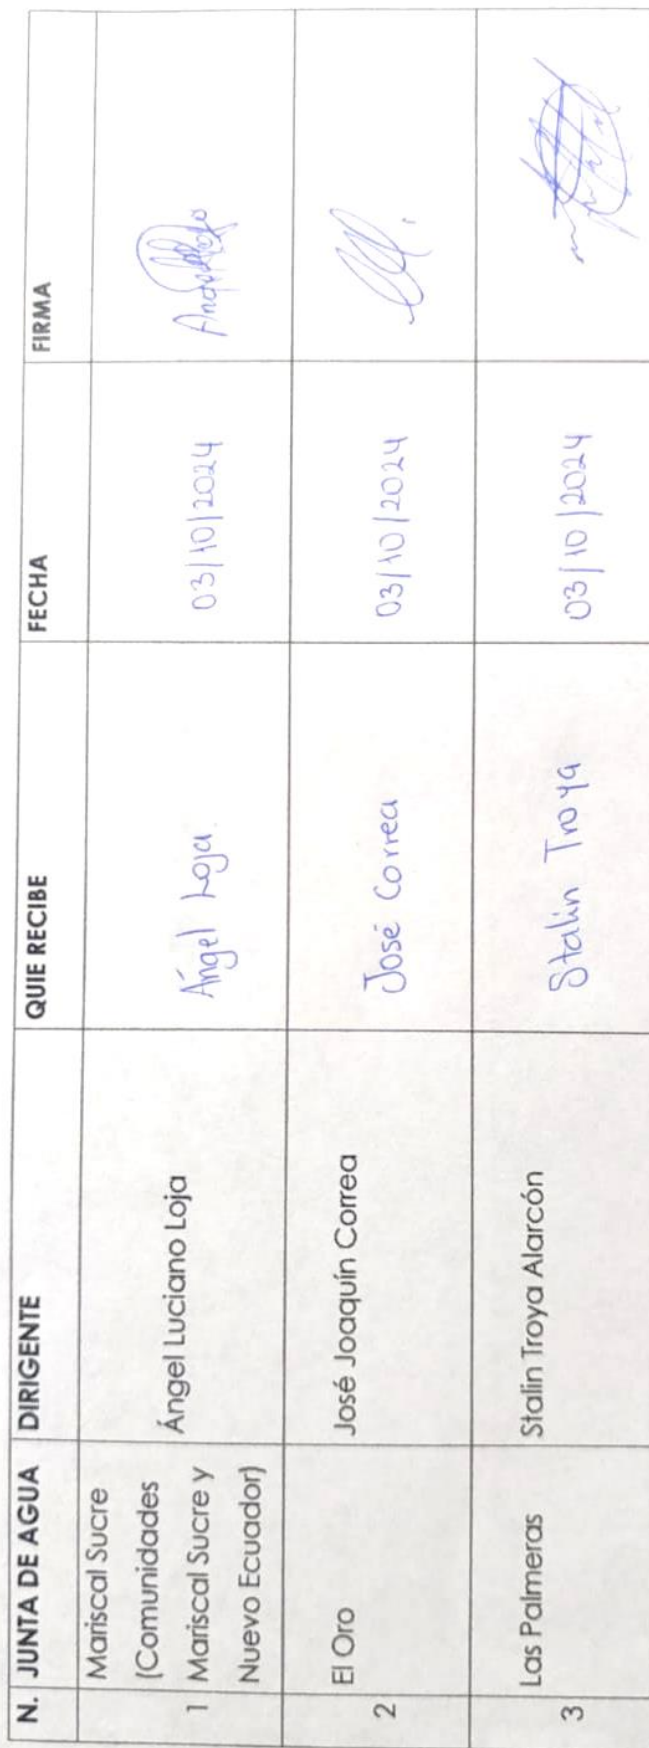 N. JUNTA DE AGUA DIRIGENTE QUIE RECIBE FECHA FIRMA
Mariscal Sucre
(Comunidades
1 Mariscal Sucre y Ángel Luciano Loja Ángel Loja 03/10/2024
Nuevo Ecuador)
2 El Oro José Joaquín Correa José Correa 03/10/2024
3 Las Palmeras Stalin Troya Alarcón Stalin Troya 03/10/2024